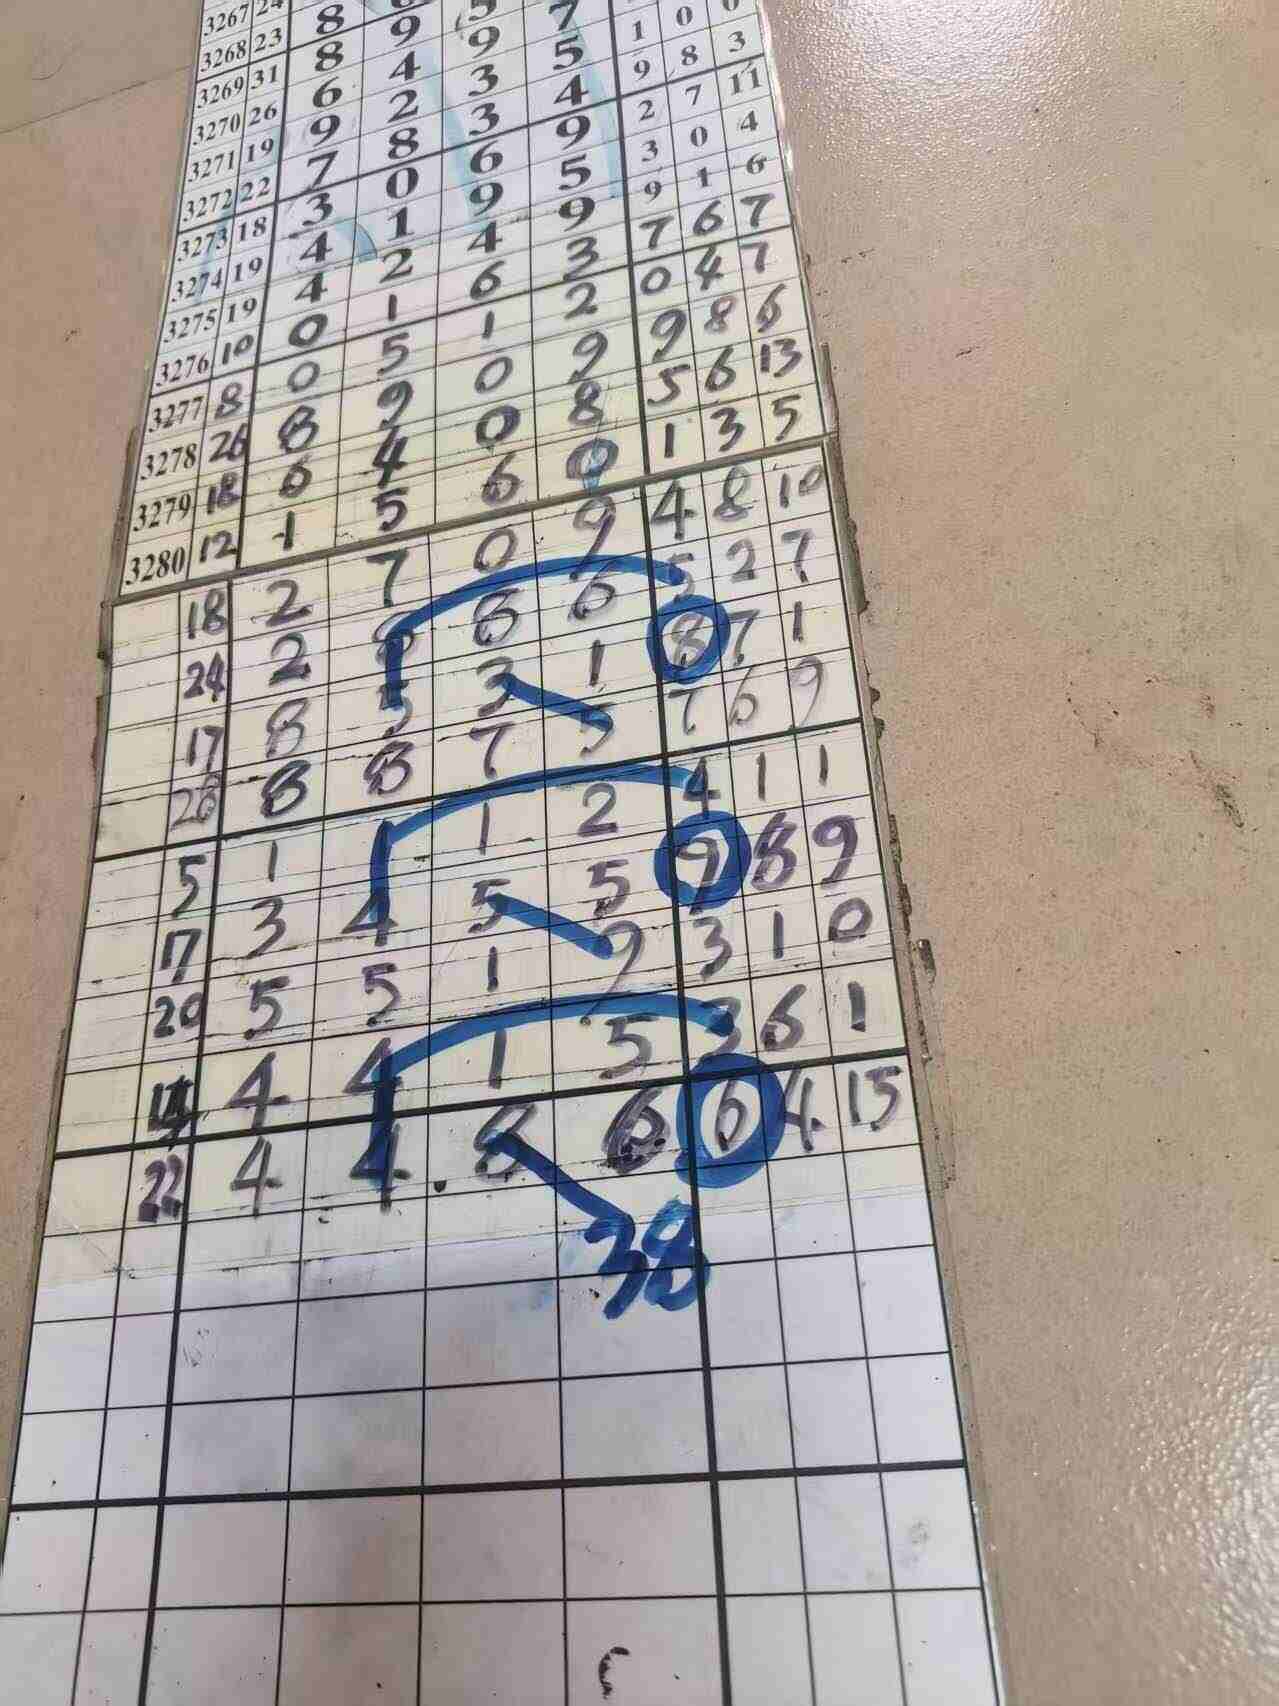 3267 24
3268 23 8
3269 31 8 9 5
3270 26 6 4 9 7
3271 19 9 2 3 5 1 0 0
3272 22 7 8 3 4 9 8 3
3273 18 3 0 6 9 2 7 11
3274 19 4 1 9 5 3 0 4
3275 19 4 2 4 9 9 1 6
3276 10 0 1 6 3 7 6 7
3277 8 0 5 1 2 0 4 7
3278 26 8 9 0 9 9 8 6
3279 18 6 4 0 8 5 6 13
3280 12 1 5 6 0 1 3 5
18 2 7 0 9 4 8 10
24 2 8 8 6 5 2 7
17 8 5 3 1 8 7 1
28 8 8 7 5 7 6 9
5 1 1 1 2 4 1 1
17 3 4 5 5 9 8 9
20 5 5 1 9 3 1 0
14 4 4 1 5 3 6 1
22 4 4 8 6 6 4 15
38